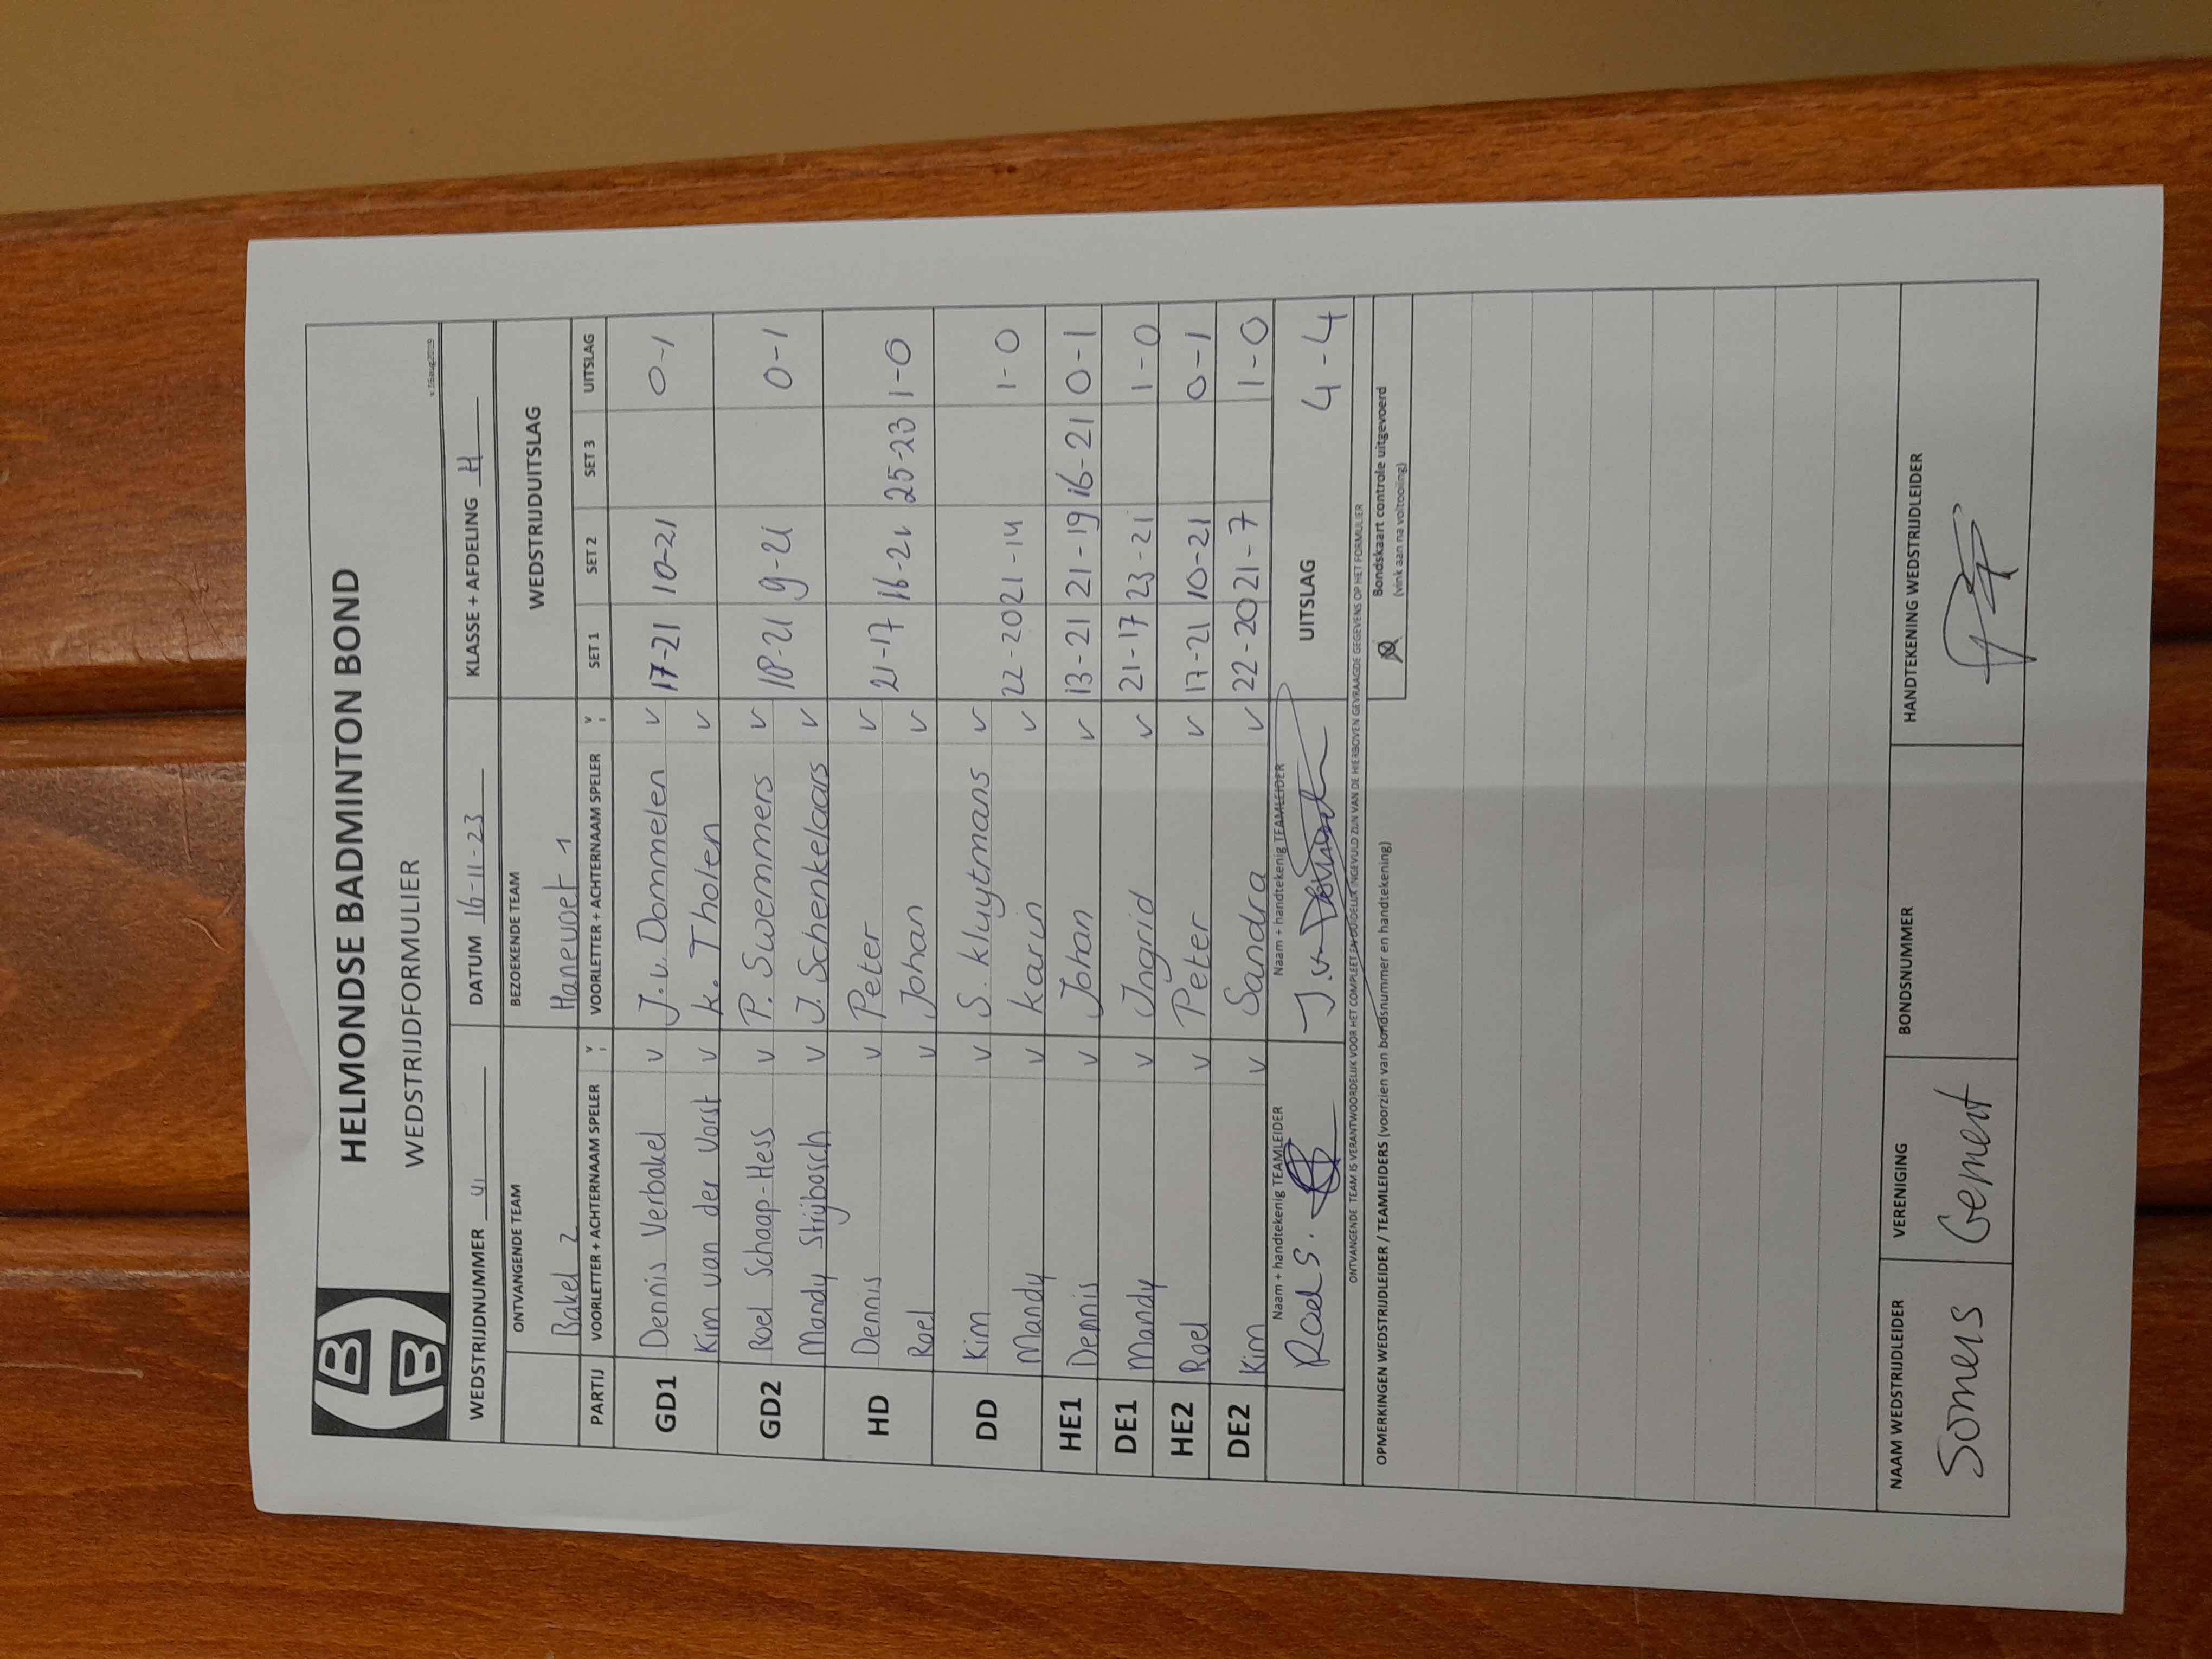 HELMONDSE BADMINTON BOND
WEDSTRIJDFORMULIER
v.16aug2019
WEDSTRIJDNUMMER 41 DATUM 16-11-23 KLASSE + AFDELING H
ONTVANGENDE TEAM BEZOEKENDE TEAM WEDSTRIJDUITSLAG
Bakel 2 Hanevoet 1
PARTIJ VOORLETTER + ACHTERNAAM SPELER V VOORLETTER + ACHTERNAAM SPELER V SET 1 SET 2 SET 3 UITSLAG
GD1 Dennis Verbakel v J.v. Dommelen v 17-21 10-21 0-1
Kim van der Vorst v K. Tholen v
GD2 Roel Schaap-Hess v P. Swemmers v 18-21 9-21 0-1
Mandy Strijbosch v J. Schenkelaars v
HD Dennis v Peter v 21-17 16-21 25-23 1-0
Roel v Johan v
DD Kim v S. Kluytmans v 22-20 21-14 1-0
Mandy v Karin v
HE1 Dennis v Johan v 13-21 21-19 16-21 0-1
DE1 Mandy v Ingrid v 21-17 23-21 1-0
HE2 Roel v Peter v 17-21 10-21 0-1
DE2 Kim v Sandra v 22-20 21-7 1-0
Naam + handtekenig TEAMLEIDER Naam + handtekenig TEAMLEIDER UITSLAG 4-4
Roel S. J.v. Dommelen
ONTVANGENDE TEAM IS VERANTWOORDELIJK VOOR HET COMPLEET EN DUIDELIJK INGEVULD ZIJN VAN DE HIERBOVEN GEVRAAGDE GEGEVENS OP HET FORMULIER
OPMERKINGEN WEDSTRIJDLEIDER / TEAMLEIDERS (voorzien van bondsnummer en handtekening)
Bondskaart controle uitgevoerd
(vink aan na voltooiing)
NAAM WEDSTRIJDLEIDER VERENIGING BONDSNUMMER HANDTEKENING WEDSTRIJDLEIDER
Somers Gemert